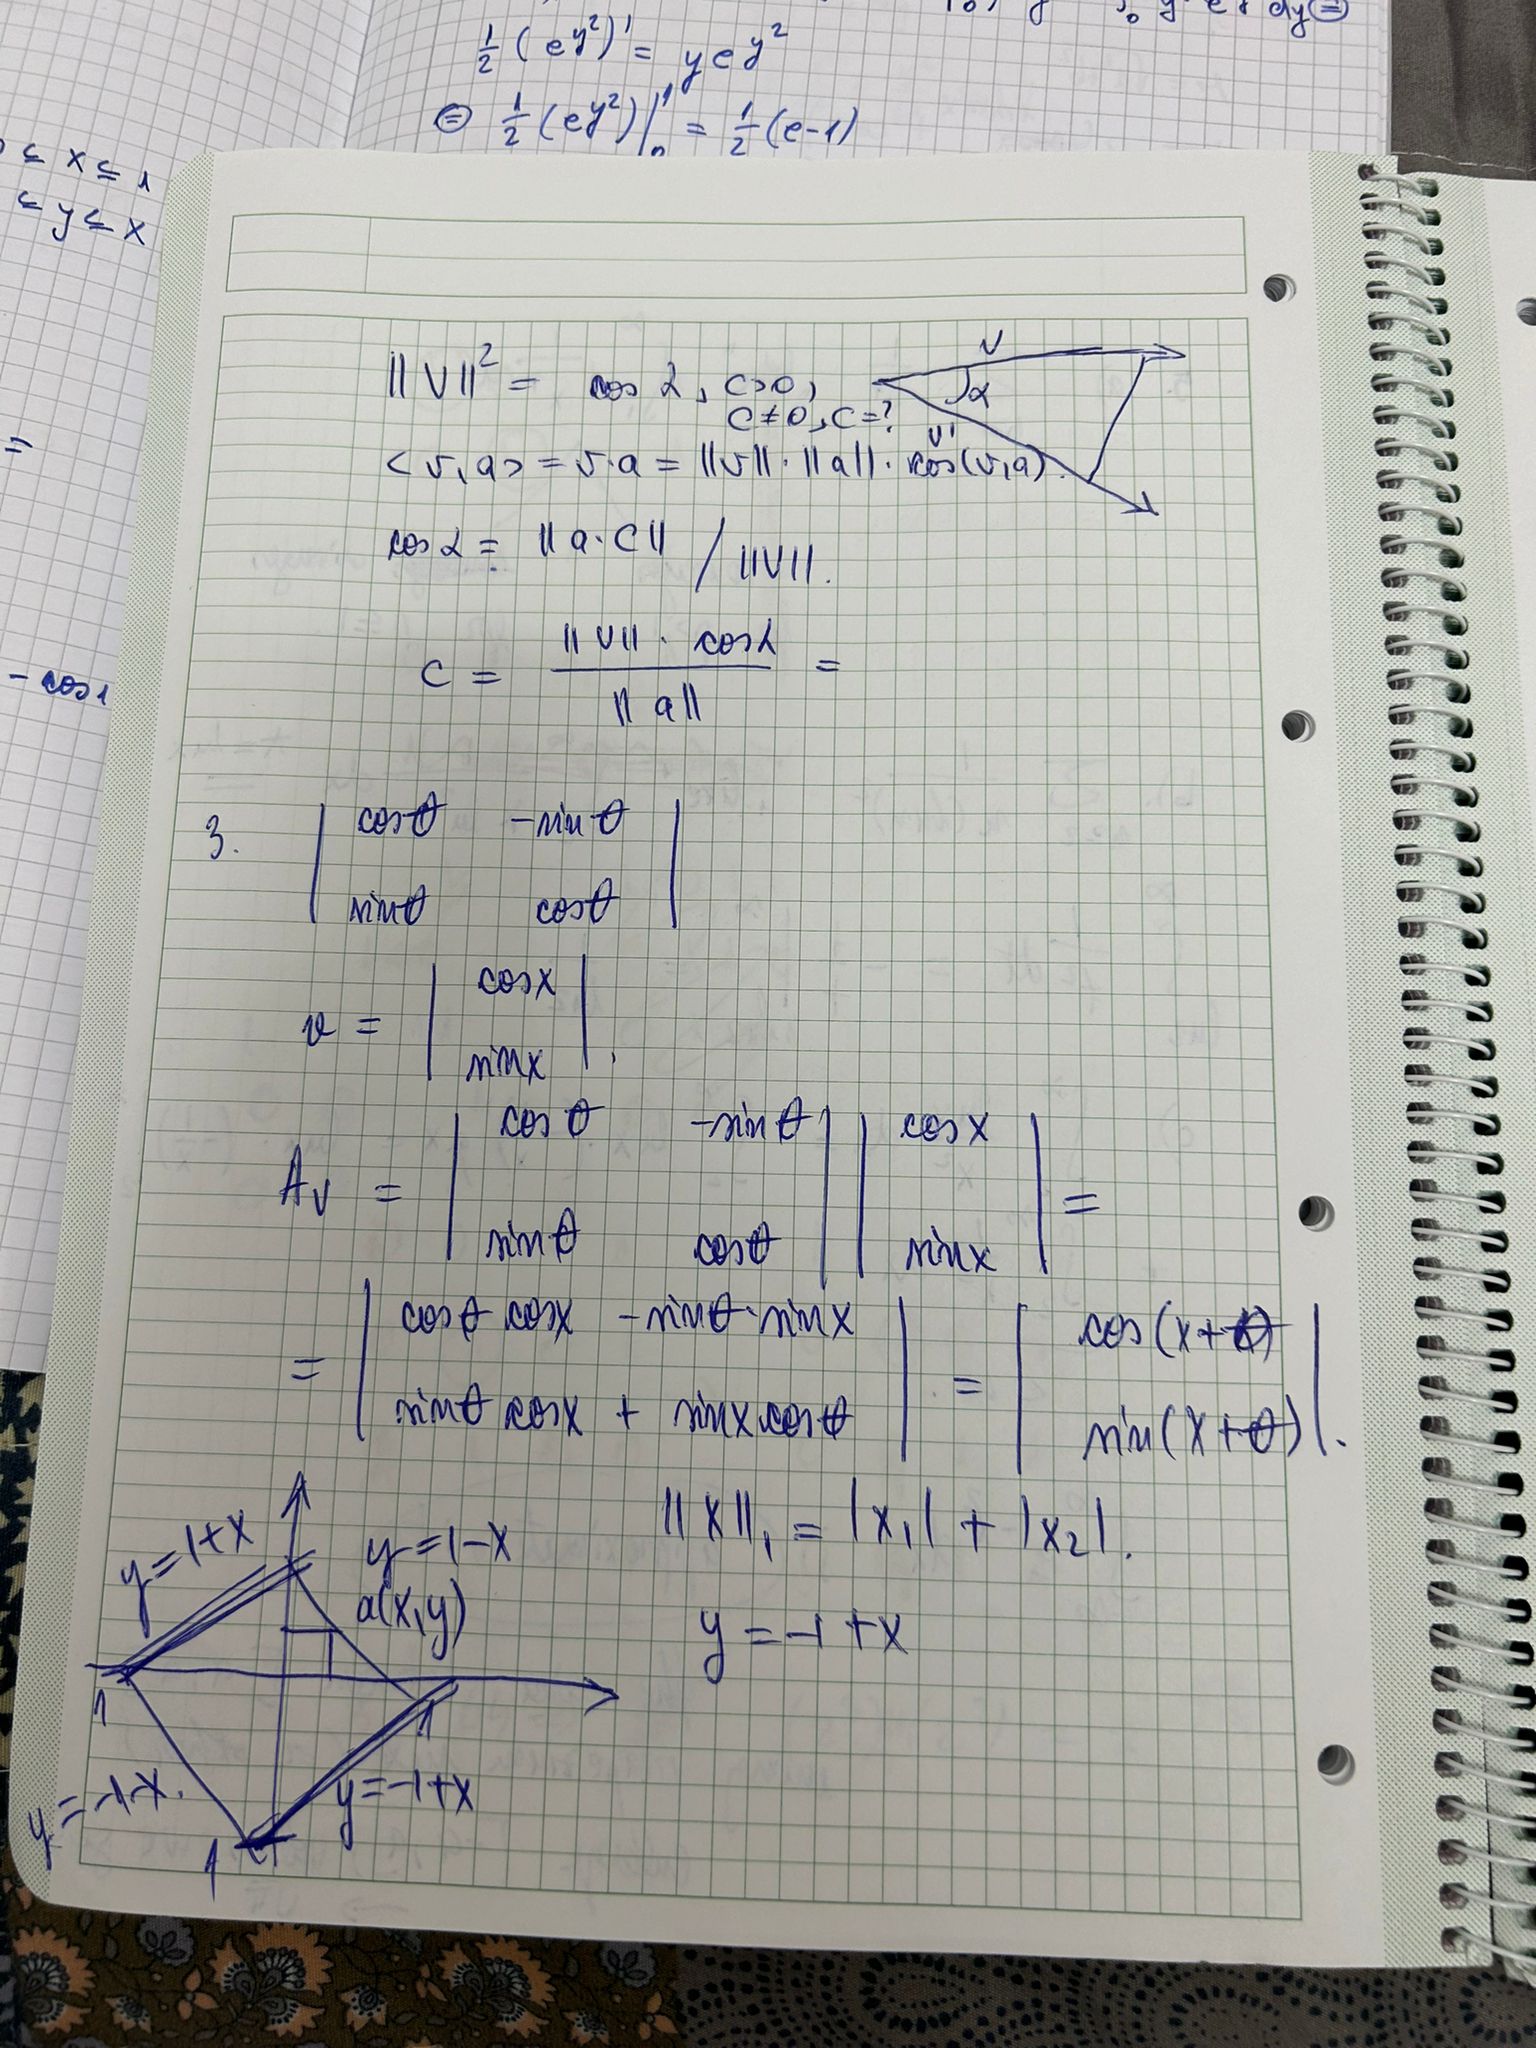 ½ (e^{y²})' = y e^{y²}
⊜ ½ (e^{y²}) |₀¹ = ½ (e-1)
≤ x ≤ 1
≤ y ≤ x
=
- cos1
||V||² = cos α, c>0,
c≠0, c=?
v
α
v'
<v,a> = v·a = ||v||·||a||·cos(v,a).
cos α = ||a·c|| / ||V||.
c = ||V||·cos α / ||a|| =
3. | cosθ -sinθ |
| sinθ cosθ |
v = | cosx |
| sinx | .
Av = | cosθ -sinθ | | cosx | =
| sinθ cosθ | | sinx |
= | cosθ cosx - sinθ·sinx | = | cos(x+θ) |
| sinθ cosx + sinx cosθ | | sin(x+θ) | .
||X||₁ = |x₁| + |x₂|.
y=1+x
y=1-x
a(x,y)
y = -1+x
1
1
y=-1-x.
y=-1+x
1